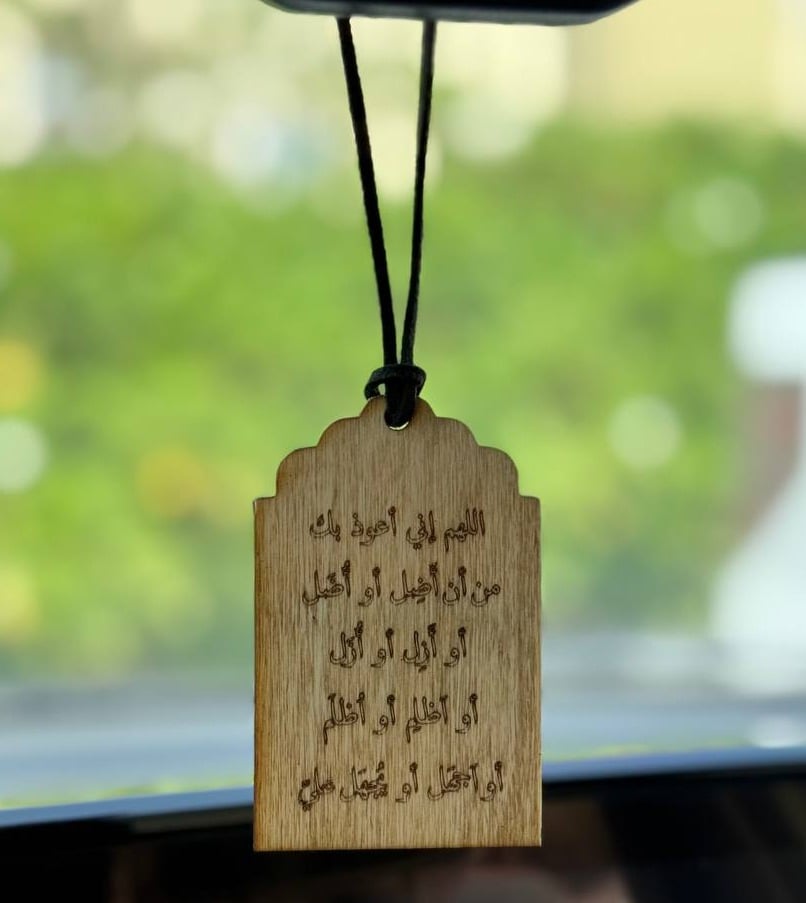 اللهم إني أعوذ بك
من أن أَضِل أو أُضَل
أو أَزِل أو أُزَل
أو أظلِم أو أُظلَم
أو أجهَل أو يُجهَل عليّ